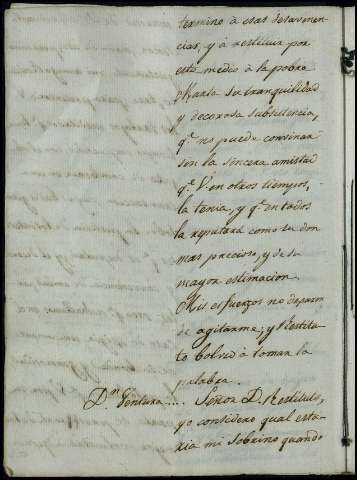 termino à esas desavenen-
cias, y à restituir por
este medio à la pobre
Maria su tranquilidad
y decorosa subsistencia,
q.e no puede convinar
sin la sincera amistad
q.e V. en otros tiempos,
la tenia, y q.e en todos
la reputará como su don
mas precioso, y de su
mayor estimacion.
Mis esfuerzos no dejaron
de agitarme; y Restitu-
to bolvió à tomar la
palabra.
D.n Ventura.... Señor D. Restituto,
yo considero qual esta-
ria mi Sobrino quando